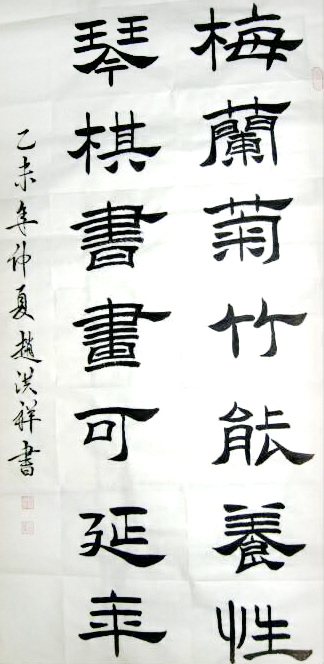 梅蘭菊竹能養性
琴棋書畫可延年
乙未年仲夏趙洪祥書